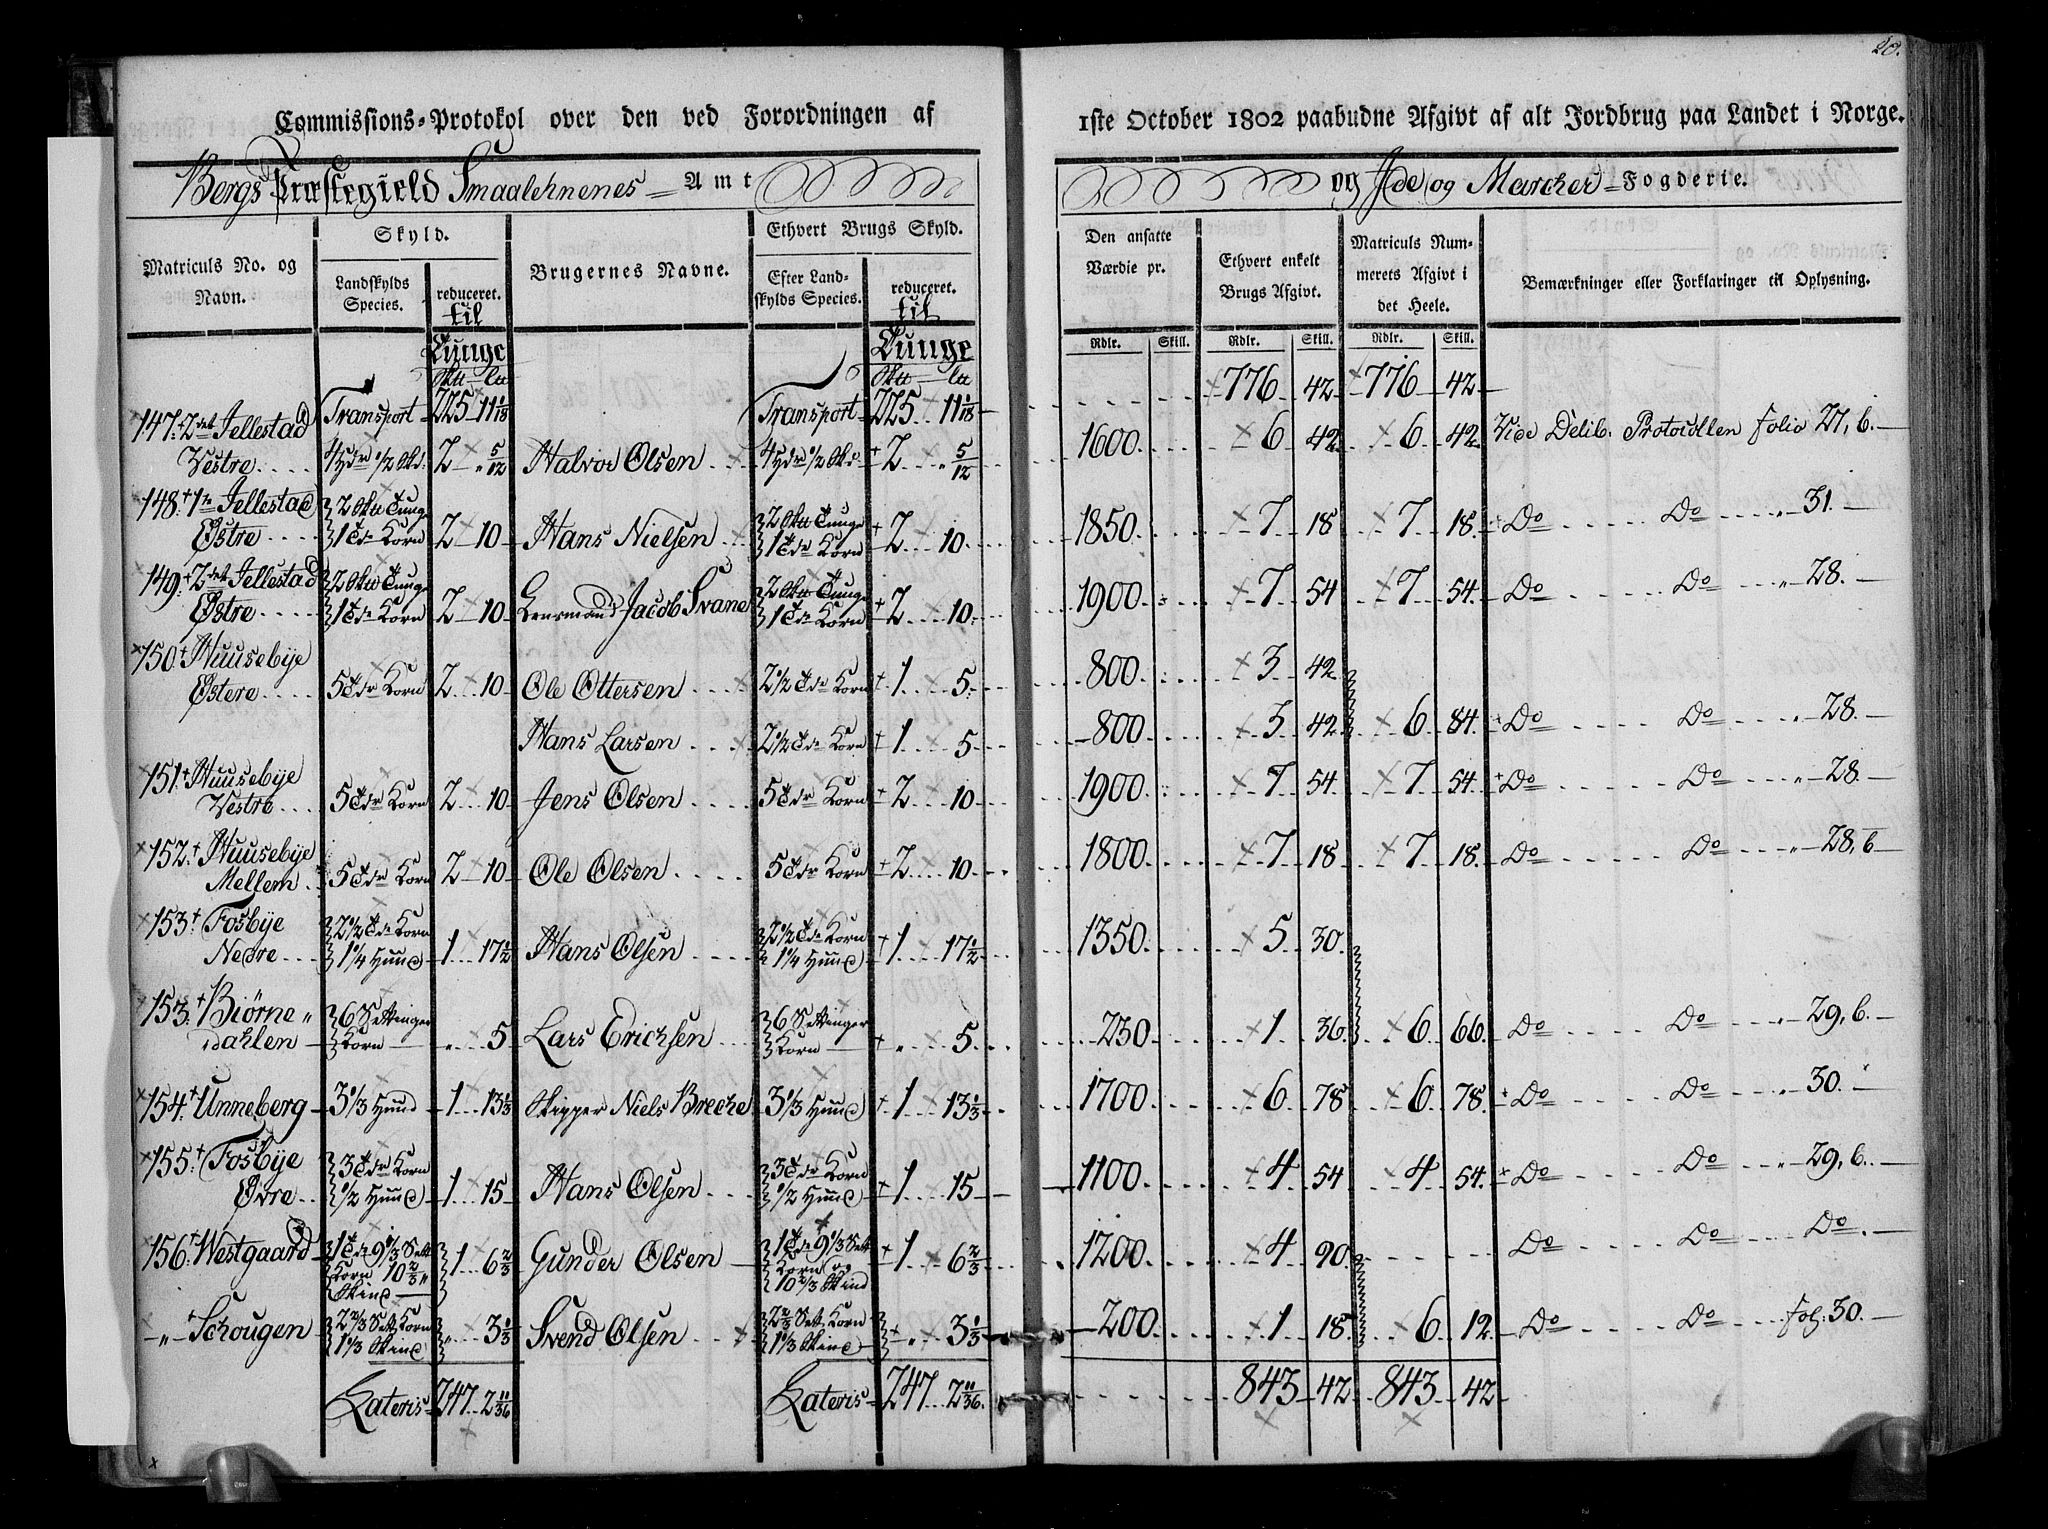 20.
Commissions=Protokol over den ved Forordningen af 1ste October 1802 paabudne Afgivt af alt Jordbrug paa Landet i Norge.
Bergs Præstegield Smaalehnenes = Amt og Ide og Marcker = Fogderie.
Matriculs No. og Navn.
Skyld.
Landskylds Species.
reduceret. til
Brugernes Navne.
Ethvert Brugs Skyld.
Efter Landskylds Species.
reduceret. til
Den ansatte Værdie pr.
Ethvert enkelt Brugs Afgivt.
Matriculs Nummerets Afgivt i det Heele.
Bemærkninger eller Forklaringer til Oplysning.
Tunge Tunge
Rdlr. Skill. Rdlr. Skill. Rdlr. Skill.
Transport 225 11 1/18 Transport 225 11 1/18 776 42 776 42
147. 2det Jellestad Vestre 4 Hdr 1/2 Skd. 2 " 5/12 Halvor Olsen 4 Hdr 1/2 Skd. 2 " 5/12 1600 6 42 6 42 Vide Delib. Protocollen folio 27, b.
148. 1te Jellestad Østre 2 Sktt Tunge 1 Tde Korn 2 10 Hans Nielsen 2 Sktt Tunge 1 Tde Korn 2 10 1850 7 18 7 18 Do Do " 31.
149. 2det Jellestad Østre 2 Sktt Tunge 1 Tde Korn 2 10 Lensmand Jacob Svane 2 Sktt Tunge 1 Tde Korn 2 10 1900 7 54 7 54 Do Do " 28.
150. Huusebye Østere 5 Tdr Korn 2 10 Ole Ottersen 2 1/2 Tde Korn 1 5 800 3 42
Hans Larsen 2 1/2 Tde Korn 1 5 800 3 42 6 84 Do Do " 28.
151. Huusebye Vestre 5 Tdr Korn 2 10 Jens Olsen 5 Tdr Korn 2 10 1900 7 54 7 54 Do Do " 28.
152. Huusebye Mellem 5 Tdr Korn 2 10 Ole Olsen 5 Tdr Korn 2 10 1800 7 18 7 18 Do Do " 28, b
153. Fosbye Nedre 2 1/2 Tde Korn 1 1/4 Huud 1 17 1/2 Hans Olsen 2 1/2 Tde Korn 1 1/4 Huud 1 17 1/2 1350 5 30
153. Biørne" dahlen 6 Settinger Korn " 5 Lars Erichsen 6 Settinger Korn " 5 250 1 36 6 66 Do Do " 29, b.
154. Unneberg 3 1/3 Huud 1 13 1/3 Skipper Niels Brecke 3 1/3 Huud 1 13 1/3 1700 6 78 6 78 Do Do 30.
155. Fosbye Øvre 3 Tdr Korn 1/2 Huud 1 15 Hans Olsen 3 Tdr Korn 1/2 Huud 1 15 1100 4 54 4 54 Do Do " 29, b.
156. Westgaard 1 Tde 9 1/3 Sett Korn 10 2/3 " Skind 1 6 2/3 Gunder Olsen 1 Tde 9 1/3 Sett Korn og 10 2/3 Skind 1 6 2/3 1200 4 90 Do Do Do.
" Schougen 2 2/3 Sett Korn 1 1/3 Skind " 3 1/3 Svend Olsen 2 2/3 Sett Korn 1 1/3 Skind " 3 1/3 200 1 18 6 12 Do Do fol: 30.
Lateris 247 2 11/36 Lateris 247 2 11/36 843 42 843 42